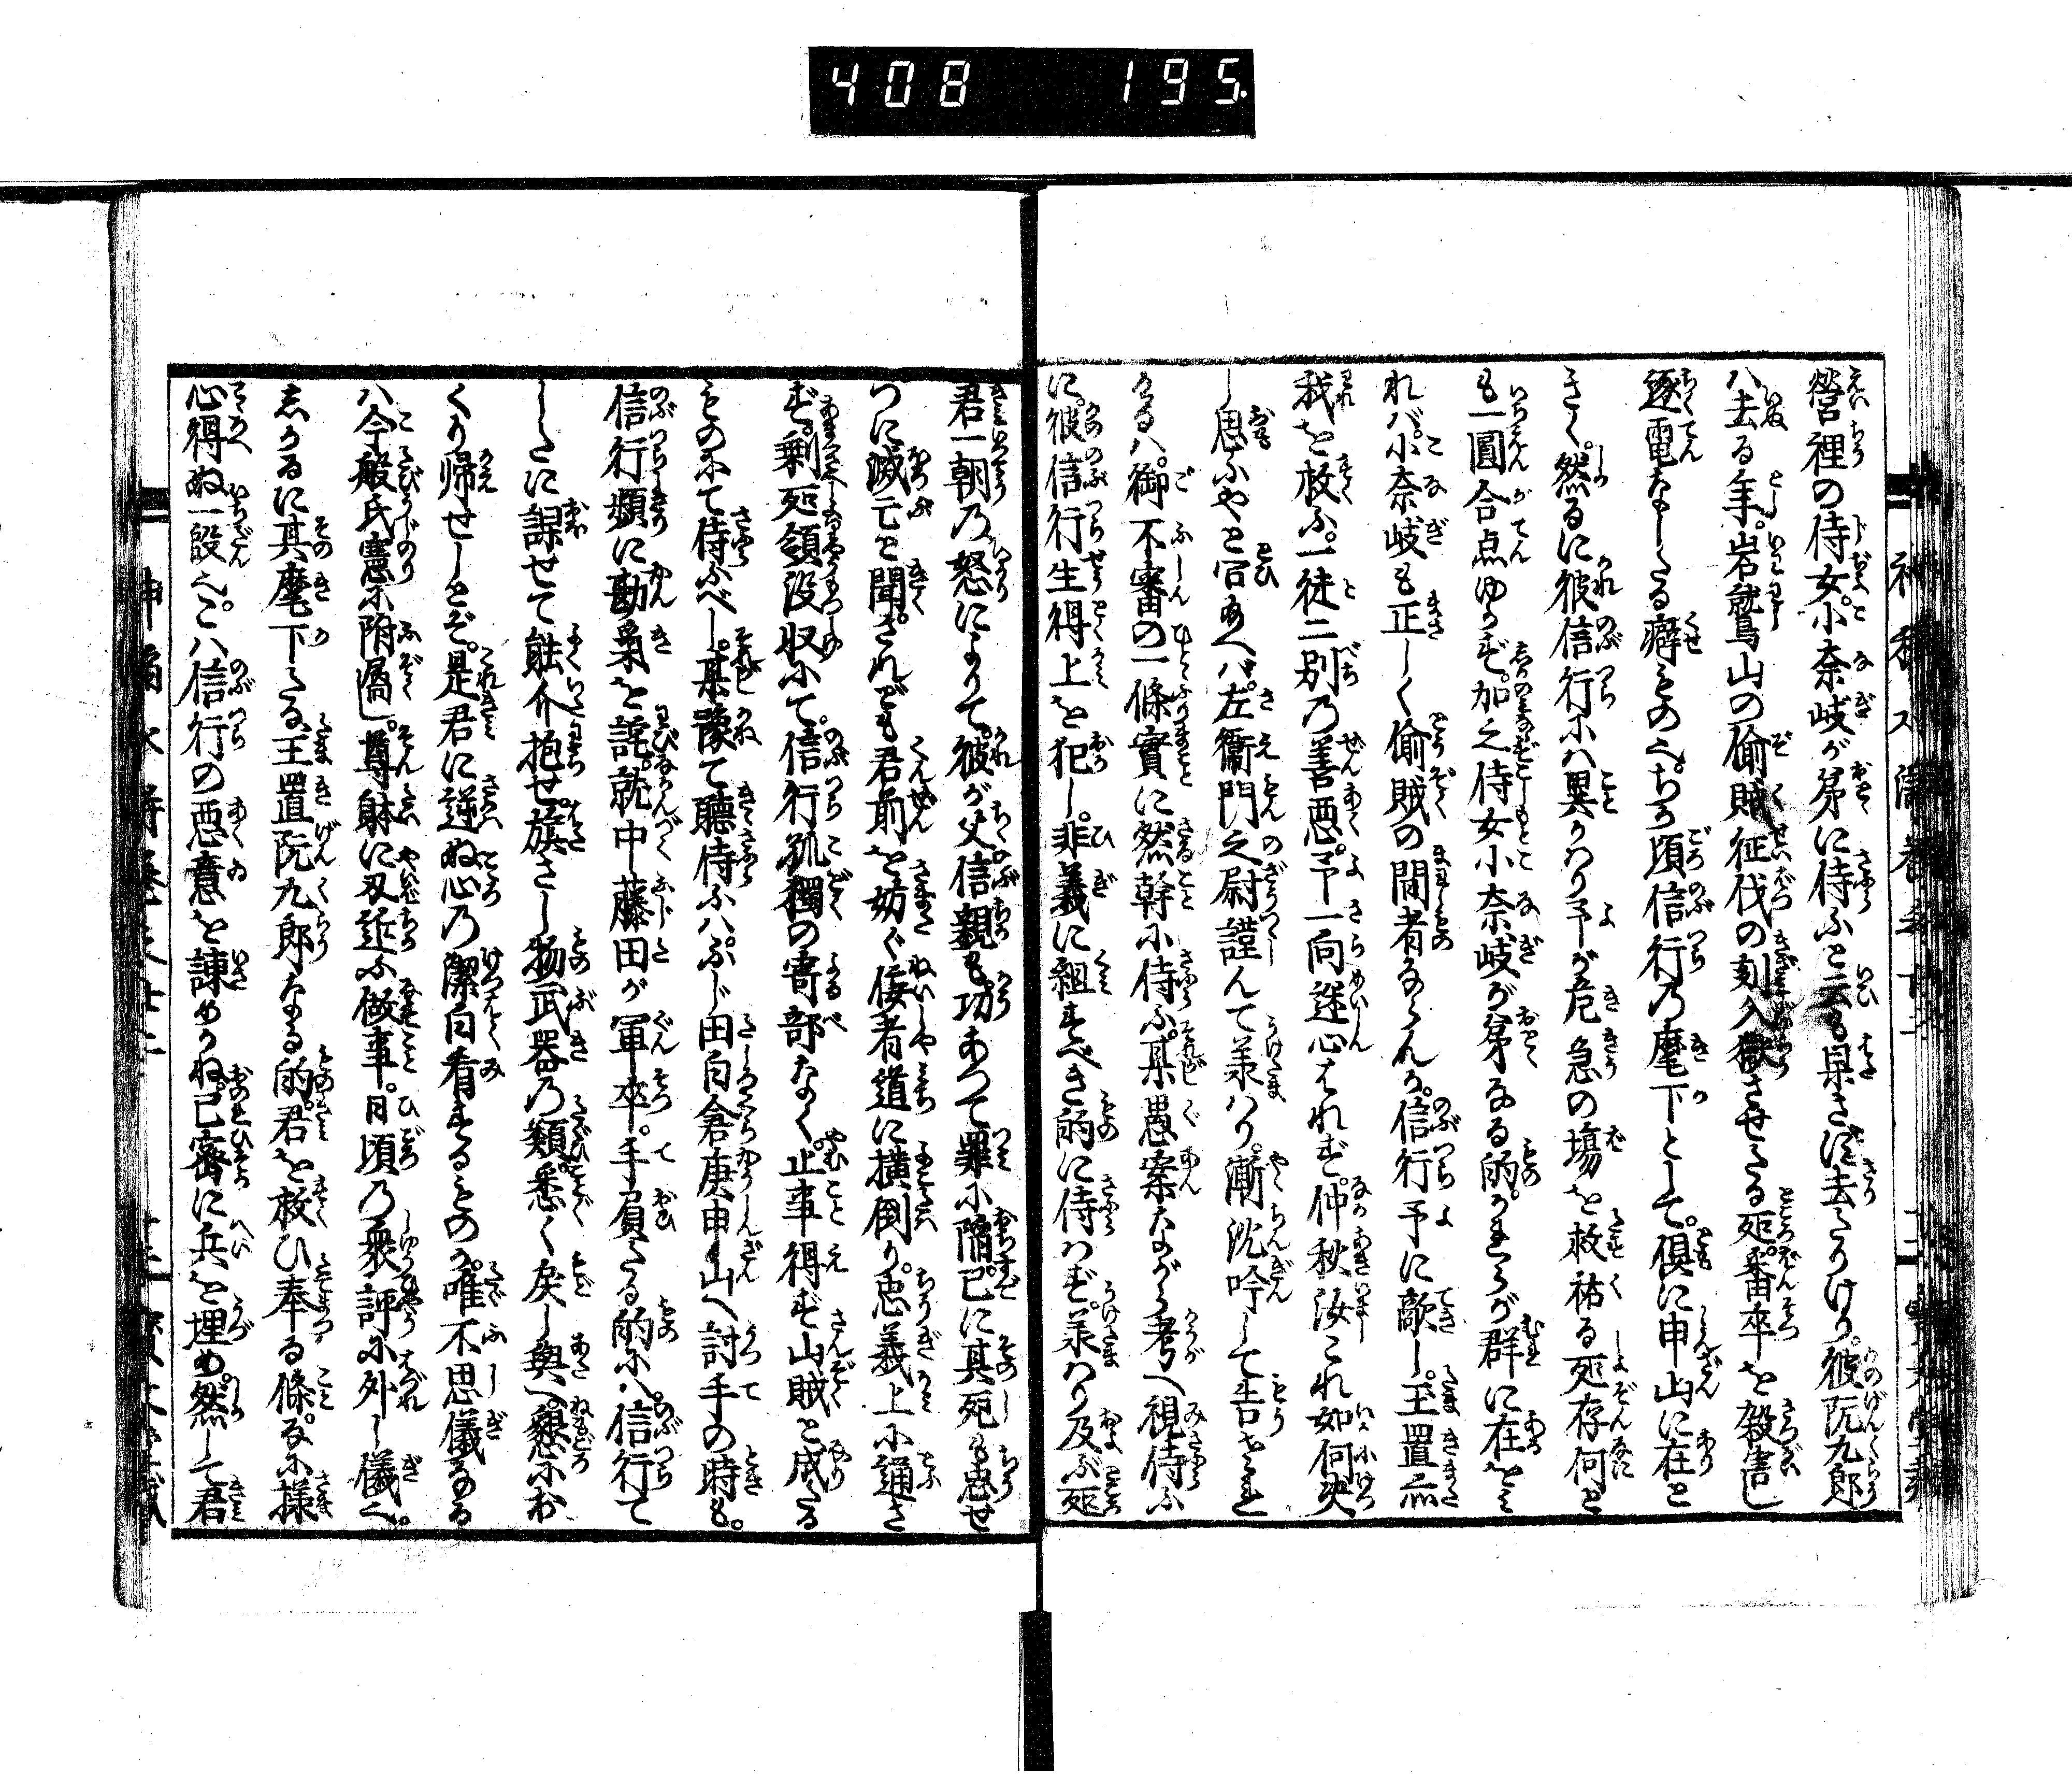 408 195.
營裡の侍女。小奈岐が弟に侍ふと云も果さぼ去りけり。彼阮九郎
ハ去る年。岩鷲山の偷賊征伐の刻入獄させたる処。番卒を殺害し
逐電なしたる癖ものへ。ちか頃信行乃麾下として。俱に申山に在と
きく。然るに彼信行ふハ異かハり予が危急の場を救祐る処存何と
も一圓合点ゆかず。加之侍女小奈岐が弟なる的。かれらが群に在をみ
れバ。小奈岐も正しく偷賊の間者ならんか。信行予に敵し。玉置亦
我を救ふ。一徒二別乃善悪。予一向迷心はれず。仲秋汝これ如何決
し思ふやと問あへバ。左衞門之尉謹んて美ハり。漸沈吟して告さく
かゝるハ。御不審の一條實に然幹小侍ふ。某愚案ながら考へ視侍ふ
に。彼信行生得上を犯し。非義に組すべき的に侍ハず。美ハり及ぶ処
君一朝乃怒によりて。彼が父信親も功あつて罪小陥。已に其死も忠せ
つに滅亡と聞。されども君前を妨ぐ佞者道に横倒り。忠義上小通さ
ず。剰処領段収小て。信行孤獨の寄部なく。止事得ず山賊と成たる
ものみて侍ふべし。某豫て聽侍ふハ。ぷじ田白倉庚申山へ討手の時も。
信行頻に勘氣を詫。就中藤田が軍卒。手負たる的ふハ信行て
したに課せて能介抱せ。旗さし物武器乃類。悉く戻し與へ。懇ふお
くり帰せしとぞ。是君に逆ぬ心乃潔白看するものか。唯不思儀なる
ハ今般氏憲小附属し。尊躰に刄近ふ做事。日頃乃衆評み外し儀へ。
しかるに其麾下たる玉置阮九郎なる的。君を救ひ奉る條。な小様
心得ぬ一段へ。こハ信行の悪意を諫めかね。己密に兵を埋め。然して君